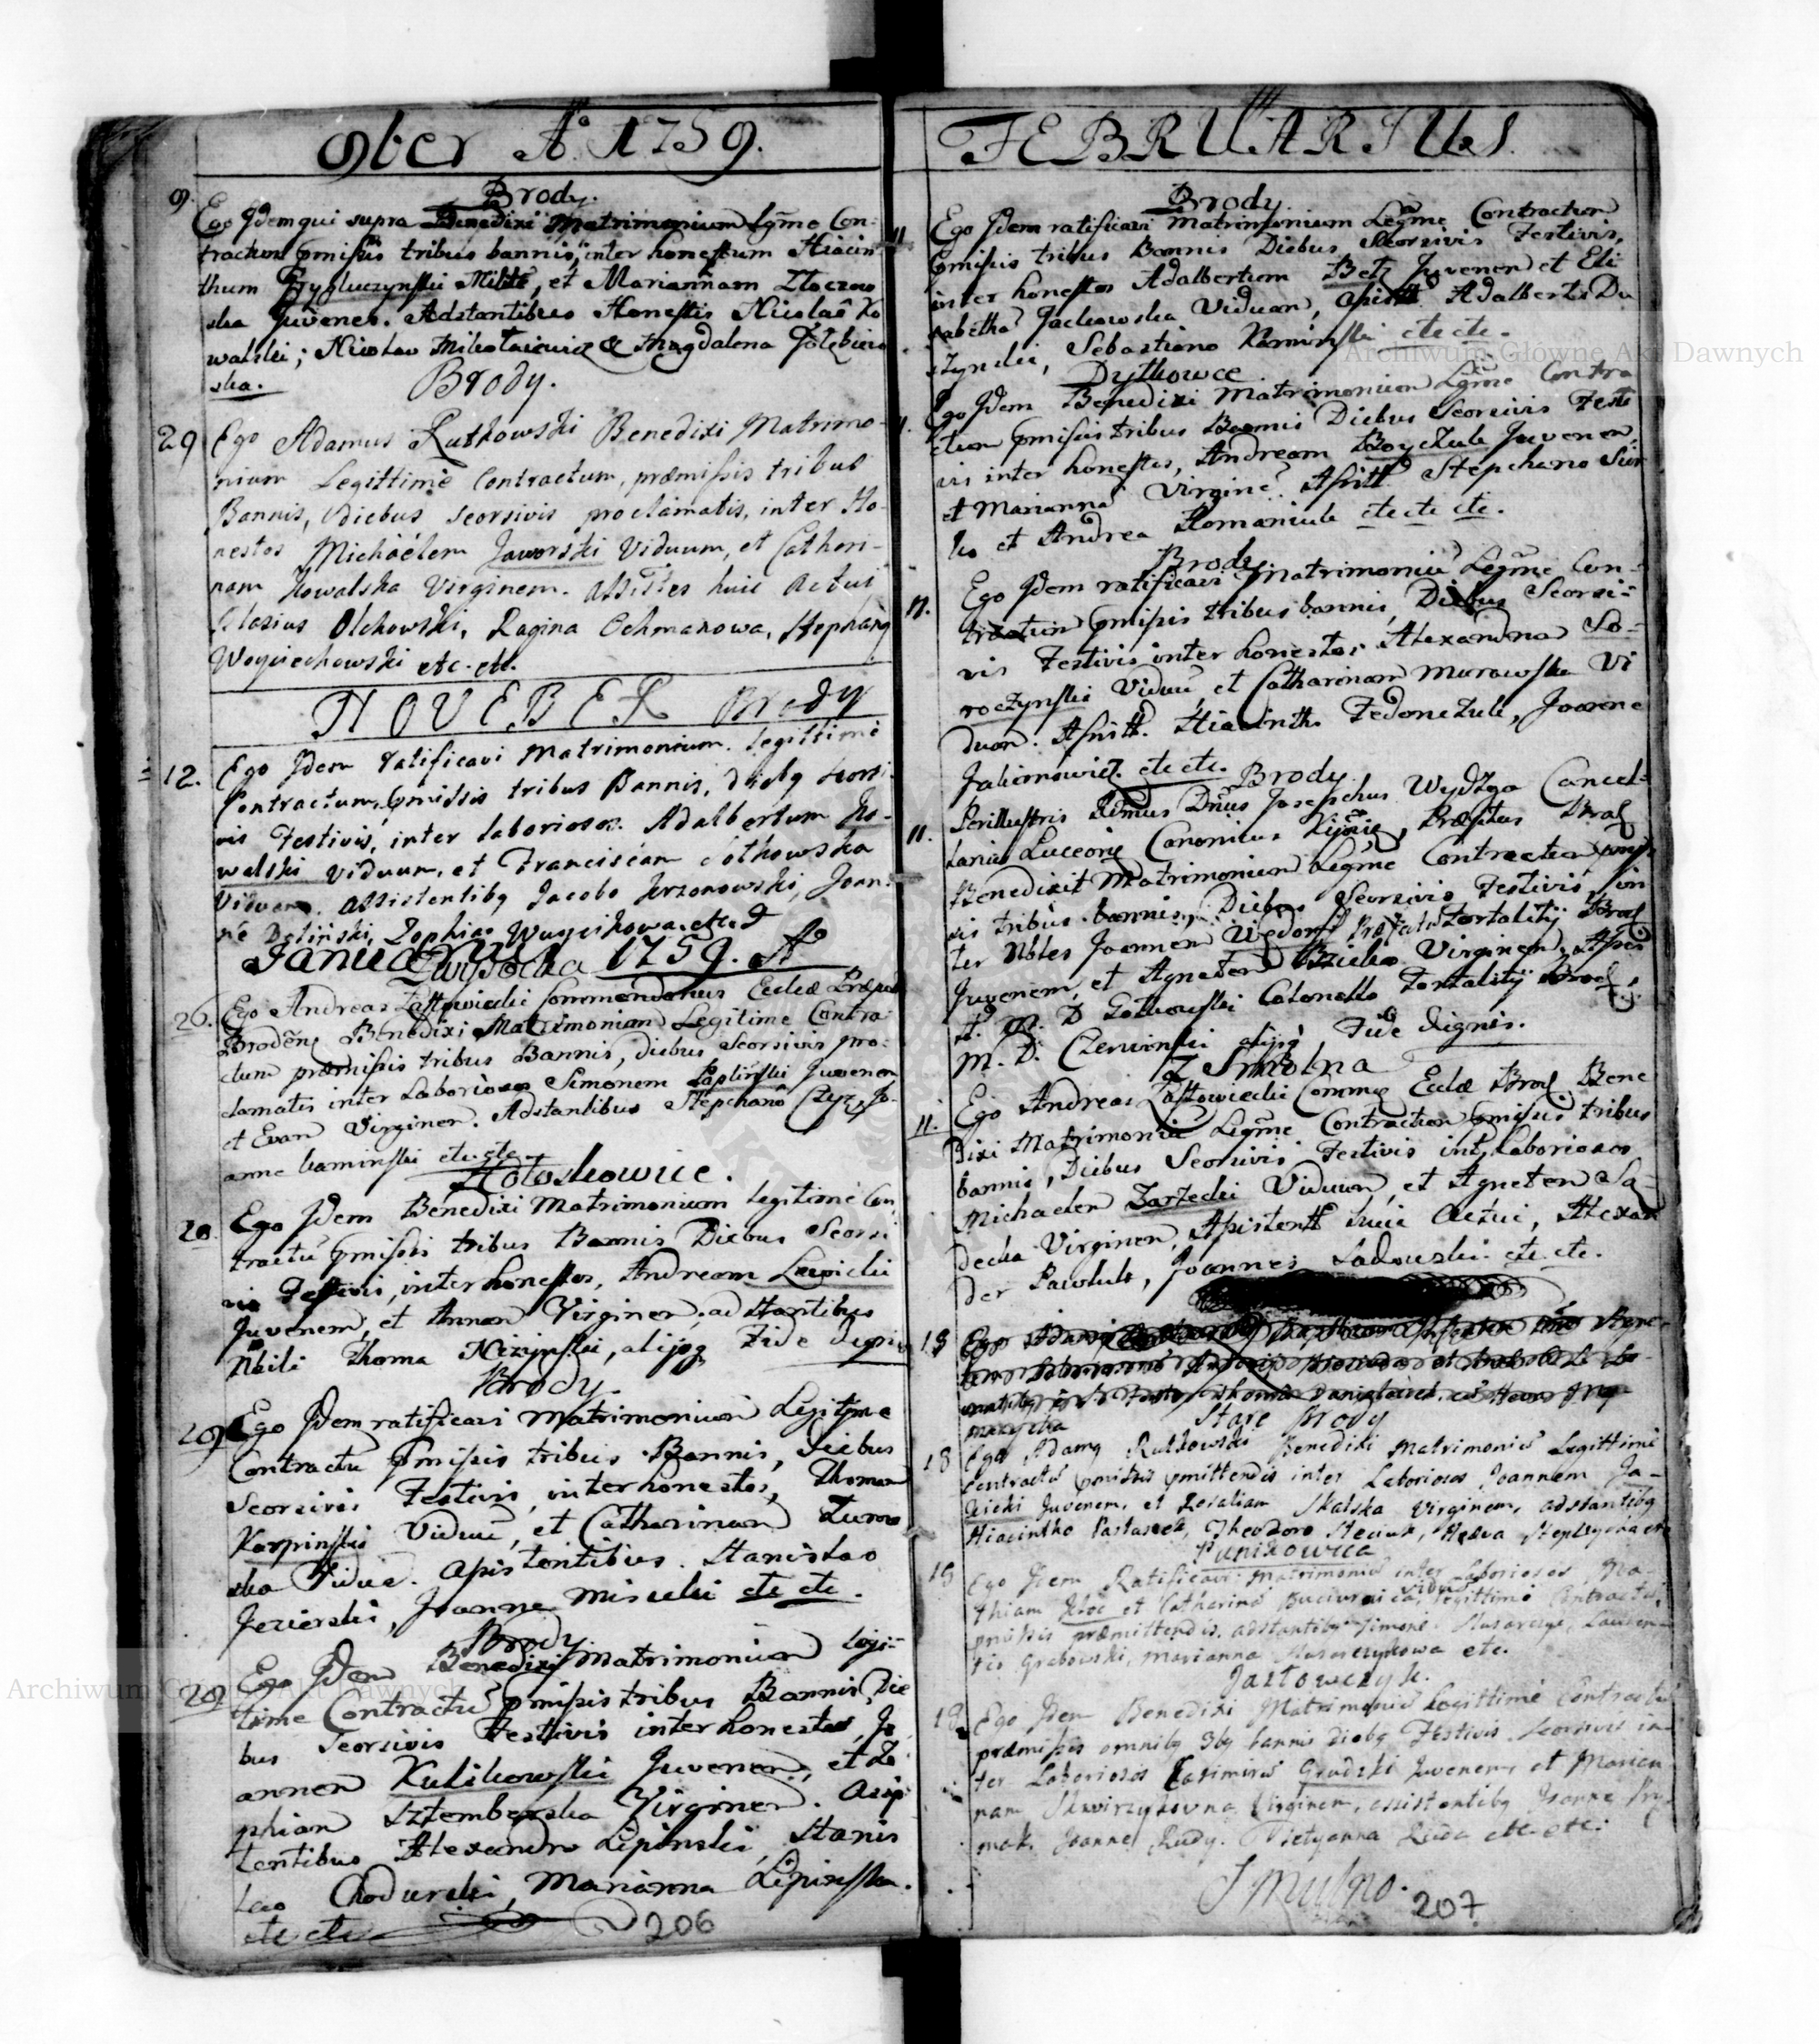 9ber Aº 1759.
Brody.
9. Ego Jdem qui supra Benedixi Matrimonium Lgme Con-
tractum pmissis tribus bannis, inter honestum Hiacin
thum Milite, et Mariannam Zloczow
ska Juvenes. Adstantibus Honestis Nicolaô Ko
walski; Nicolao Mikołaiewicz & Magdalena Gołębiow
ska.
Brody.
29 Ego Adamus Rutkowski Benedixi Matrimo-
nium Legittimè Contractum, præmissis tribus
Bannis, diebus seorsivis proclamatis, inter Ho-
nestos Michäèlem Jaworski Viduum, et Cathari-
nam Kowalska Virginem. Assittes huic Actui
Blasius Olchowski, Ragina Ochmanowa, Stephanq
Woyciechowski etc. etc.
NOVEBER Brody
12. Ego Jdem ratificavi Matrimonium Legittimè
Contractum, pmissis tribus Bannis, diebq seorsi
vis Festivis, inter laboriosos Adalbertum Ko-
walski viduum, et Franciscam Sotkowska
Viduam. Assistentibq Jacobo Jerzonowski, Joan-
ne Doliński, Zophia etc.
Januarius 1759. Aº
Zwysocka
26. Ego Andreas Zastowiecki Commendarius Eccłæ Præposit
Brodeñs Benedixi Matrimonium Legitime Contra-
ctum præmissis tribus Bannis, diebus Seorsivis pro-
clamatis inter Laboriosos Simonem Laplinski Juvenem
et Evam Virginem. Adstantibus Stephanô Czyz, Jo-
anne kaminski etc etc.
Hołoskowice.
28. Ego Jdem Benedixi Matrimonium legitimè Con
tractũ pmissis tribus Bannis Diebus Seorsi
vis Festivis, inter honestos, Andream Lewicki
Juvenem, et Annam Virginem, adstantibus
Nbili Thoma Nizynski, alijsq Fide dignis
Brody.
29 Ego Jdem ratificavi Matrimonium Legitime
Contractũ pmissis tribus Bannis, diebus
Seorsivis Festivis, inter honestos, Thomam
Karpinski Viduũ, et Catharinam Zuraw
ska Viduã. Assistentibus. Stanislao
Jezierski, Joanne Misiecki etc etc.
Brody
29 Ego Jdem Benedixi Matrimonium legi-
time Contractũ pmissis tribus Bannis Die
bus Seorsivis Festivis inter honestos, Jo
annem Kulikowski Juvenem, et Zo
phiam Sztemberska Virginem. Assis
tentibus Alexandro Lipinski, Stanis
lao Chodurski, Marianna Lipinska.
etc etc
206
FEBRUARIUS
Brody
11 Ego Jdem ratificavi Matrimonium Legme Contractum
pmissis tribus Bannis Diebus Seorsivis Festivis,
inter honestos Adalbertum Betz Juvenem et Eli
sabetha Jackowska Viduam, Assistt Adalberto Du
szynski, Sebastiano Kaminski etc etc.
Dytkowce
11. Ego Jdem Benedixi Matrimonium Lgme Contra
ctum pmissis tribus Bannis Diebus Seorsivis Festi
vis inter honestos, Andream Boyczuk Juvenem
et Marianna Virginẽ. Assistt Stephano
ko et Andrea Romaniuk etc etc etc.
Brody
11. Ego Jdem ratificavi Matrimoniũ Legme Con-
tractum pmissis tribus bannis, Diebus Seorsi-
vis Festivis inter honestos Alexandrum So-
roczynski Viduũ, et Catharinam Murawska Vi
duam. Assistt. Hiacintho Fedonczuk, Joanne
Jakimowicz. etc etc.
Brody
11. Perillustris Rdmus Dnus Josephus Wydzga Cancel-
larius Luceoriẽ Canonicus Kijoviẽ, Præptus Brod
Benedixit Matrimonium Legme Contractum pmis
sis tribus bannis, Diebus Seorsivis Festivis, in
ter Nbles Joannem Præfatæ Fortalitij Brod
Juvenem, et Agnetem Virginem. Assis
tt. M. D Gotkowski Colonello Fortalitij Brod,
M. D. Czerwinski alijsq Fide dignis.
Z Smolna
11. Ego Andreas Zastowiecki Commẽ Eccłæ Brod Bene
dixi Matrimoniũ Legme Contractum pmissis tribus
bannis, Diebus Seorsivis Festivis intq Laboriosos
Michaelem Zarzecki Viduum, et Agnetem Sa-
decka Virginem, Assistentt huic Actui, Alexan
der Pawluk, Joannes Sadowski etc etc.
18 Ego Adamq
Stare Brody
18 Ego Adamq Rutkowski Benedixi Matrimoniũ Legittimè
contractũ pmissis pmittendis inter Laboriosos Joannem Ja-
Juvenem, et Rosaliam Skalska Virginem, adstantibq
Hiacintho Pastuszek, Theodoro Steciuk,
Punikowica
18 Ego Jdem Ratificavi Matrimoniũ inter Laboriosos Ma-
thiam Kloc et Catharinã viduã, legittime Contractũ,
pmissis præmittendis, adstantibq Simone Lauren-
tio Grabowski, Marianna etc.
Jazłowczyk.
18. Ego Jdem Benedixi Matrimoniũ Legittimè Contractũ
præmissis omnibq 3bq bannis diebq Festivis Seorsivis in-
ter Laboriosos Casimirũ Grudzki Juvenem, et Marian-
nam Skwirzykowna Virginem, assistentibq Joanne Pry-
mak, Joanne Rudy. etc etc.
Smulno.
207
Archiwum Główne Akt Dawnych
Archiwum Główne Akt Dawnych